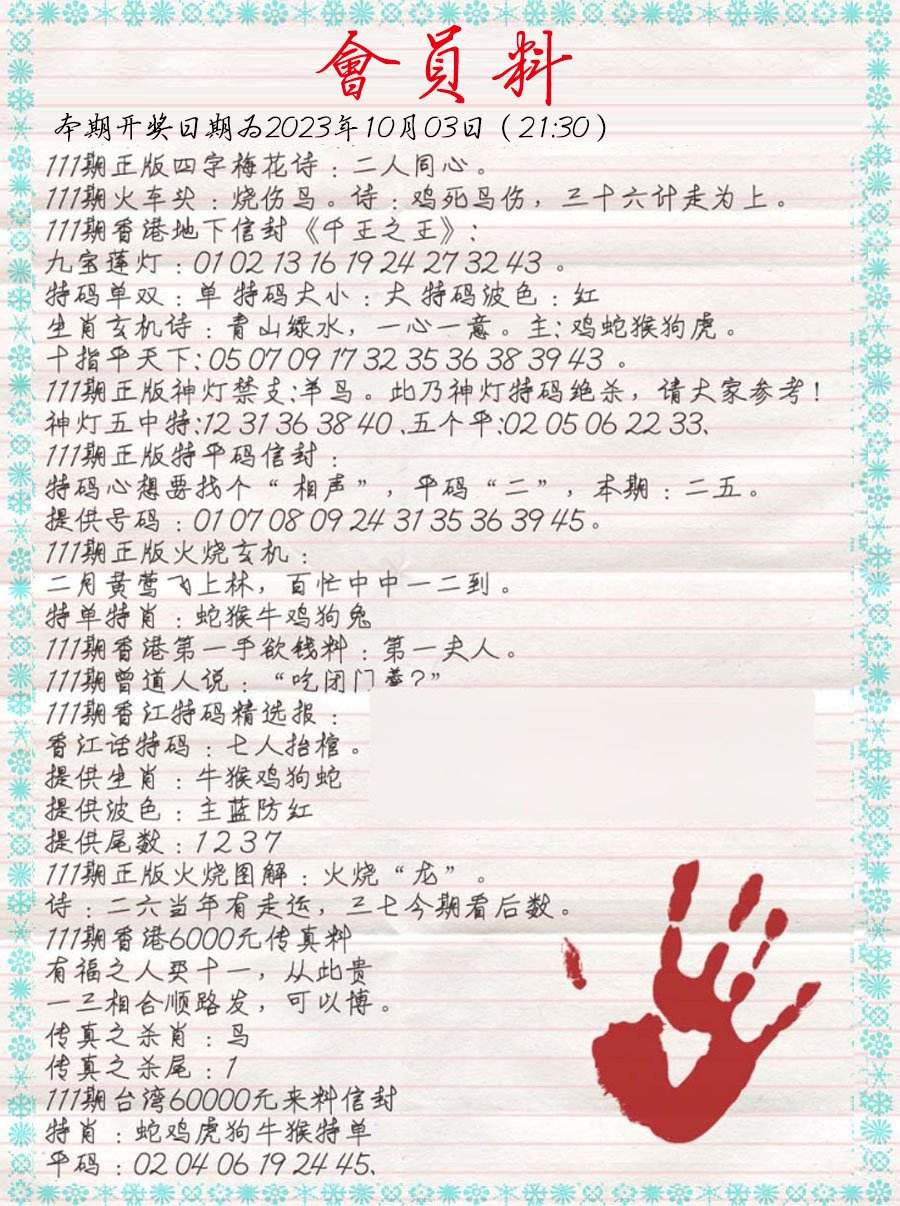 會員料
本期开奖日期为2023年10月03日（21:30）
111期正版四字梅花诗：二人同心。
111期火车头：烧伤鸟。诗：鸡死鸟伤，三十六计走为上。
111期香港地下信封《千王之王》:
九宝莲灯：01 02 13 16 19 24 27 32 43 。
特码单双：单 特码大小：大 特码波色：红
生肖玄机诗：青山绿水，一心一意。主: 鸡蛇猴狗虎。
十指平天下: 05 07 09 17 32 35 36 38 39 43 。
111期正版神灯禁支:羊鸟。此乃神灯特码绝杀，请大家参考！
神灯五中特:12 31 36 38 40 、五个平:02 05 06 22 33、
111期正版特平码信封：
特码心想要找个“ 相声”，平码“二”，本期：二五。
提供号码：01 07 08 09 24 31 35 36 39 45。
111期正版火烧玄机：
二月黄莺飞上林，百忙中中一二到。
特单特肖：蛇猴牛鸡狗兔
111期香港第一手欲钱料：第一夫人。
111期曾道人说：“吃闭门羹？”
111期香江特码精选报：
香江话特码：七人抬棺。
提供生肖：牛猴鸡狗蛇
提供波色：主蓝防红
提供尾数：1 2 3 7
111期正版火烧图解：火烧“龙”。
诗：二六当年有走运，三七今期看后数。
111期香港6000元传真料
有福之人买十一，从此贵
一三相合顺路发，可以博。
传真之杀肖：鸟
传真之杀尾：1
111期台湾60000元来料信封
特肖：蛇鸡虎狗牛猴特单
平码：02 04 06 19 24 45、